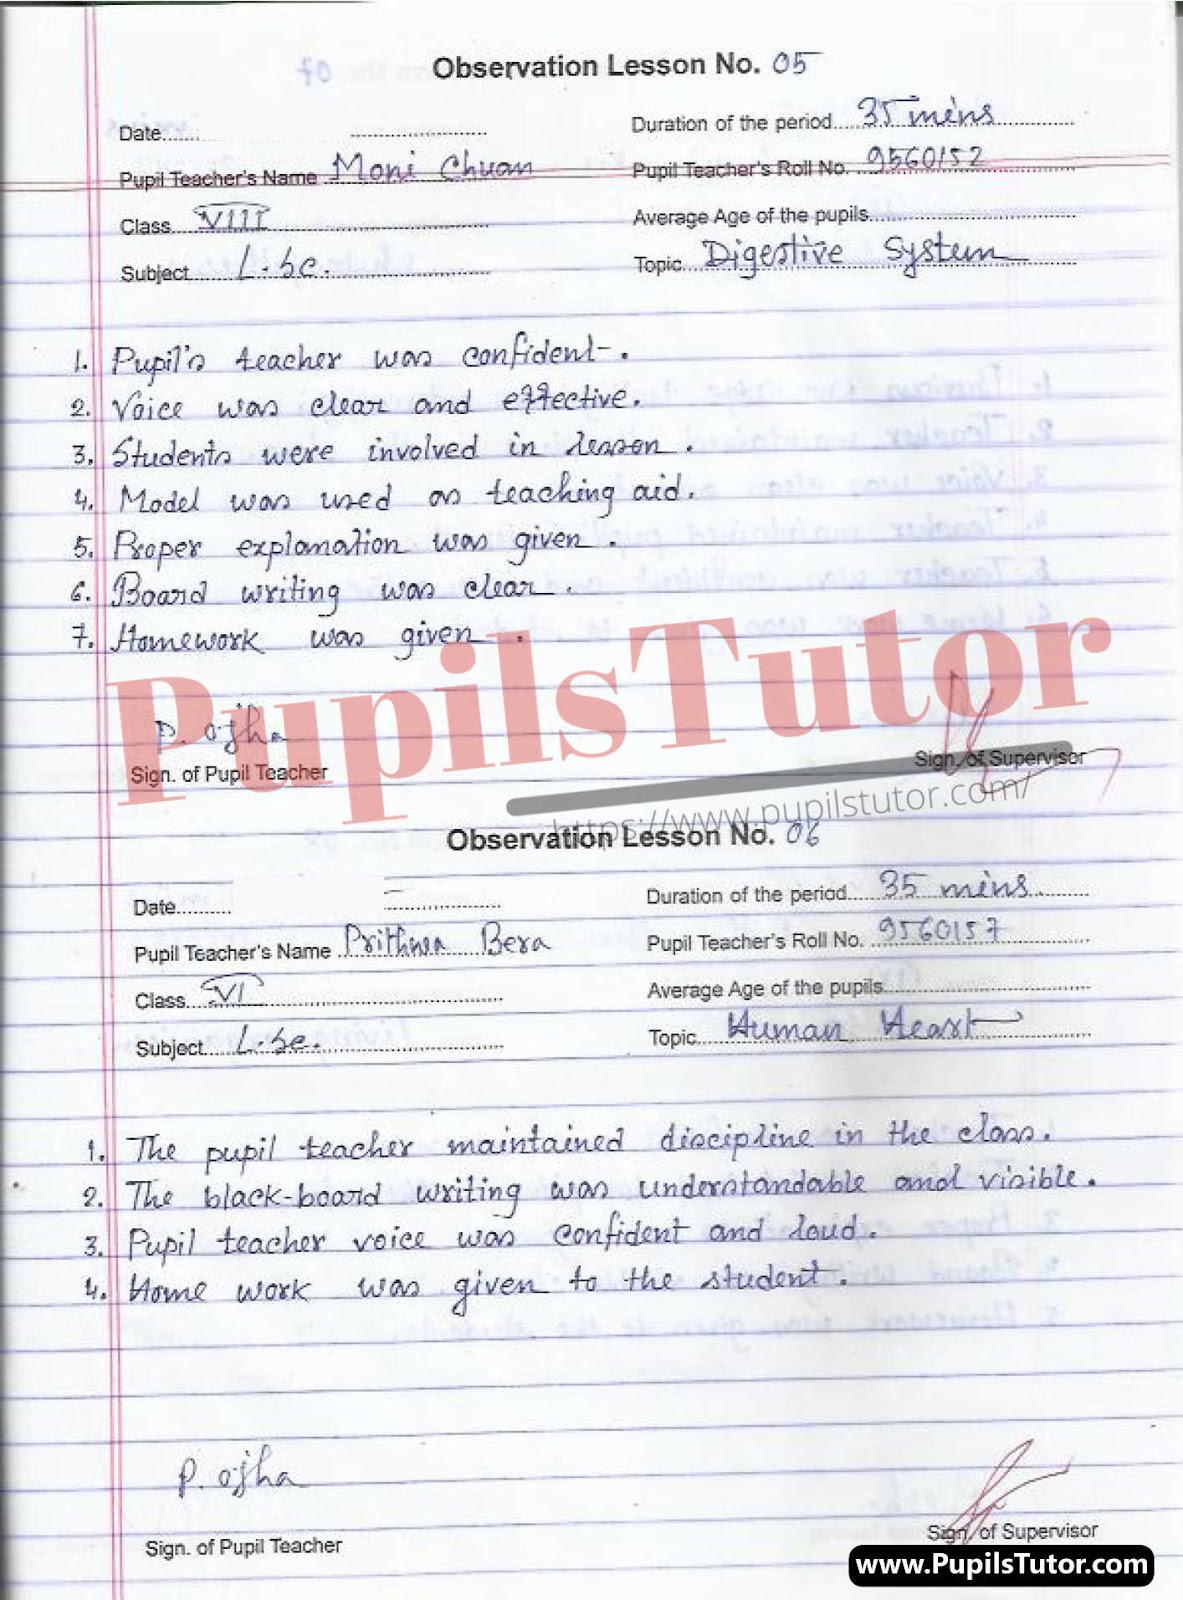 Observation Lesson No. 05
Date...... ......................
Duration of the period.... 35 mins
Pupil Teacher's Name Moni Chuan
Pupil Teacher's Roll No. 9560152
Class.... VIII
Average Age of the pupils....
Subject.... L.Sc.
Topic.... Digestive System
1. Pupil's teacher was confident.
2. Voice was clear and effective.
3. Students were involved in lesson.
4. Model was used as teaching aid.
5. Proper explanation was given.
6. Board writing was clear.
7. Homework was given.
PupilsTutor
P. Ojha
Sign. of Pupil Teacher
Sign. of Supervisor
https://www.pupilstutor.com/
Observation Lesson No. 06
Date.......... ......................
Duration of the period.... 35 mins
Pupil Teacher's Name Prithwa Bera
Pupil Teacher's Roll No. 9560157
Class.... VI
Average Age of the pupils....
Subject.... L.Sc.
Topic.... Human Heart
1. The pupil teacher maintained discipline in the class.
2. The black-board writing was understandable and visible.
3. Pupil teacher voice was confident and loud.
4. Home work was given to the student.
P. Ojha
Sign. of Pupil Teacher
Sign. of Supervisor
www.PupilsTutor.com